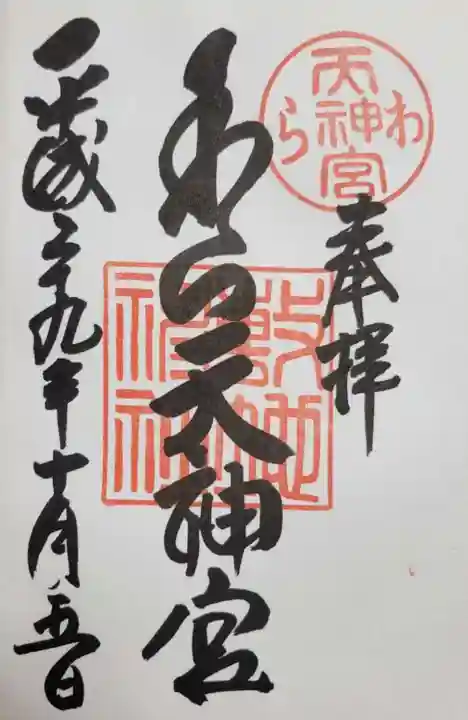 わら天神宮
奉拝
わら天神宮
敷地神社
平成二十九年十月五日